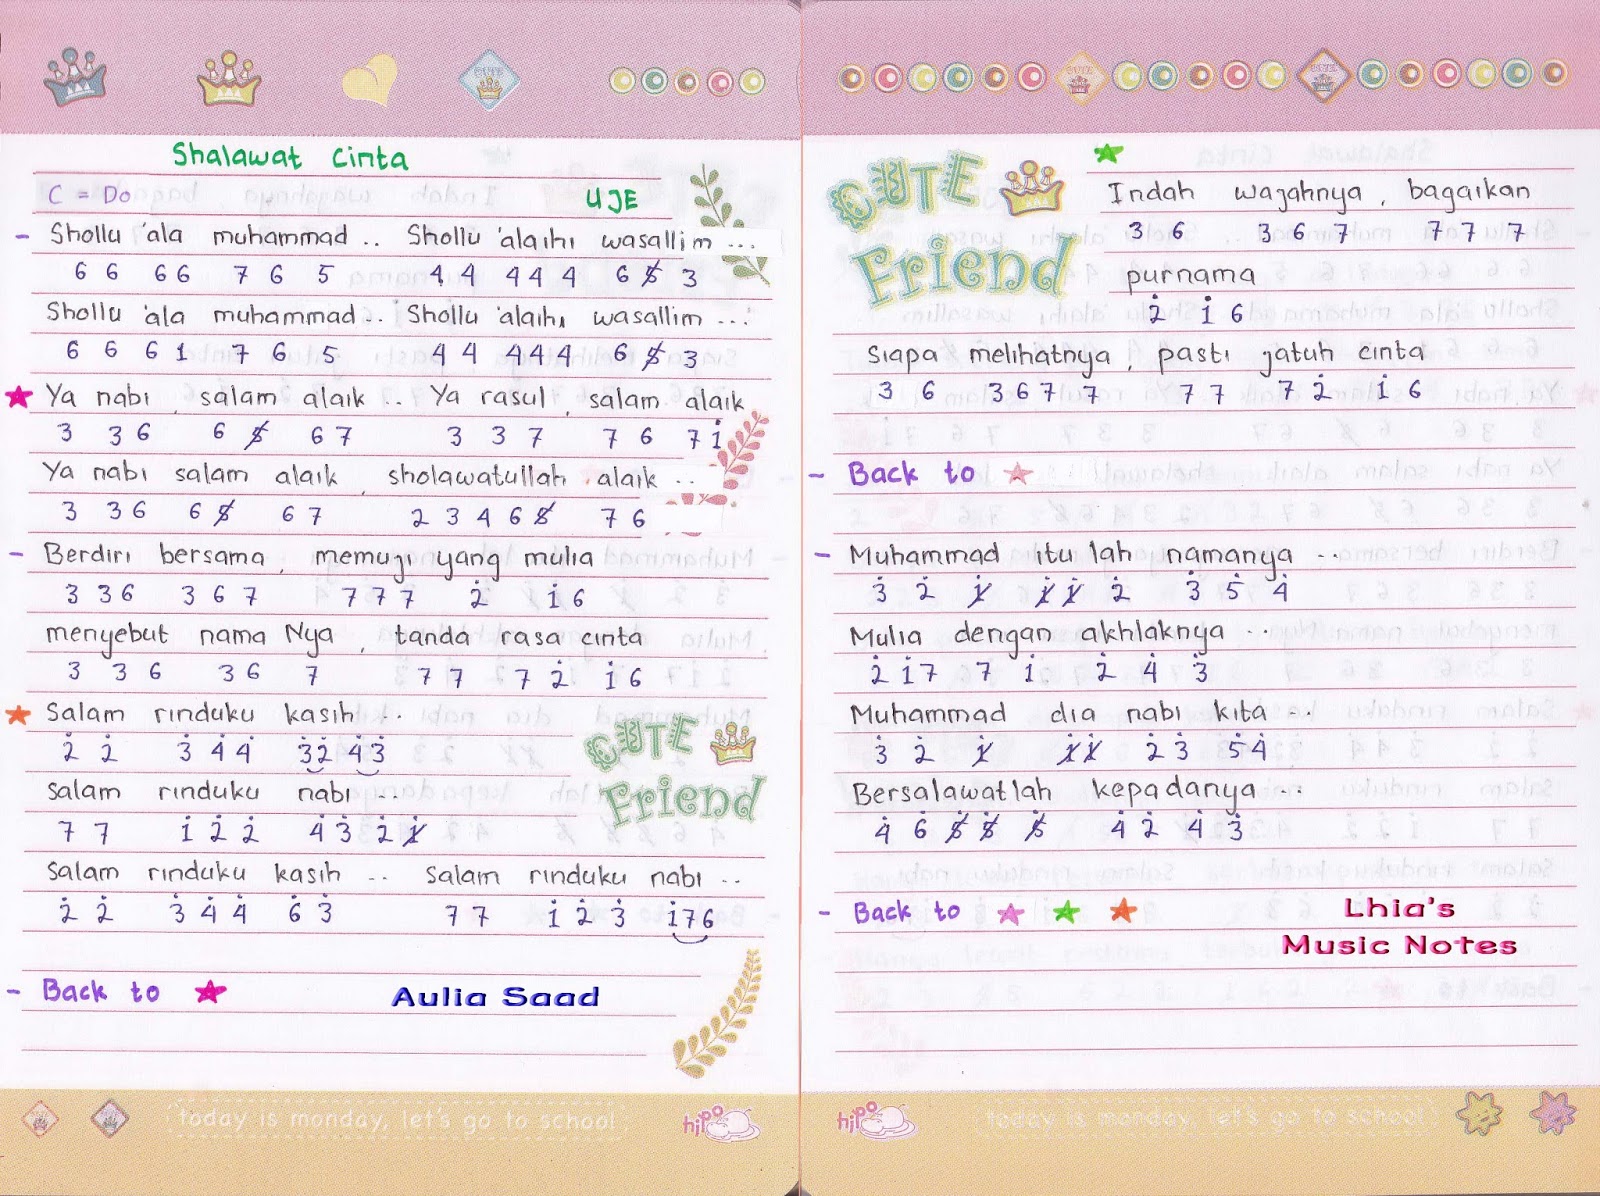 Shalawat Cinta
C = Do UJE
- Shollu 'ala muhammad .. Shollu 'alaihi wasallim ...
6 6 6 6 7 6 5 4 4 4 4 4 6 5̸ 3
Shollu 'ala muhammad .. Shollu 'alaihi wasallim ...
6 6 6 1 7 6 5 4 4 4 4 4 6 5̸ 3
★ Ya nabi, salam alaik .. Ya rasul, salam alaik
3 3 6 6 5̸ 6 7 3 3 7 7 6 7 1̇
Ya nabi salam alaik, sholawatullah alaik ..
3 3 6 6 5̸ 6 7 2 3 4 6 5̸ 7 6
- Berdiri bersama, memuji yang mulia
3 3 6 3 6 7 7 7 7 2̇ 1̇ 6
menyebut nama Nya, tanda rasa cinta
3 3 6 3 6 7 7 7 7 2̇ 1̇ 6
★ Salam rinduku kasih ..
2̇ 2̇ 3̇ 4̇ 4̇ 3̇ 2̇ 4̇ 3̇
salam rinduku nabi ...
7 7 1̇ 2̇ 2̇ 4̇ 3̇ 2̇ 1̸̇
salam rinduku kasih .. salam rinduku nabi ..
2̇ 2̇ 3̇ 4̇ 4̇ 6̇ 3̇ 7 7 1̇ 2̇ 3̇ 1̇ 7 6
- Back to ★
Aulia Saad
CUTE
Friend
today is monday, let's go to school
hipo
CUTE
Friend
★
Indah wajahnya, bagaikan
3 6 3 6 7 7 7 7
purnama
2̇ 1̇ 6
siapa melihatnya, pasti jatuh cinta
3 6 3 6 7 7 7 7 7 2̇ 1̇ 6
- Back to ★
- Muhammad itu lah namanya ..
3̇ 2̇ 1̸̇ 1̸̇ 1̸̇ 2̇ 3̇ 5̇ 4̇
Mulia dengan akhlaknya ...
2̇ 1̇ 7 7 1̇ 2̇ 4̇ 3̇
Muhammad dia nabi kita ..
3̇ 2̇ 1̸̇ 1̸̇ 1̸̇ 2̇ 3̇ 5̇ 4̇
Bersalawatlah kepadanya ...
4̇ 6̇ 5̸̇ 5̸̇ 5̸̇ 4̇ 2̇ 4̇ 3̇
- Back to ★ ★ ★
Lhia's
Music Notes
hipo
today is monday, let's go to school